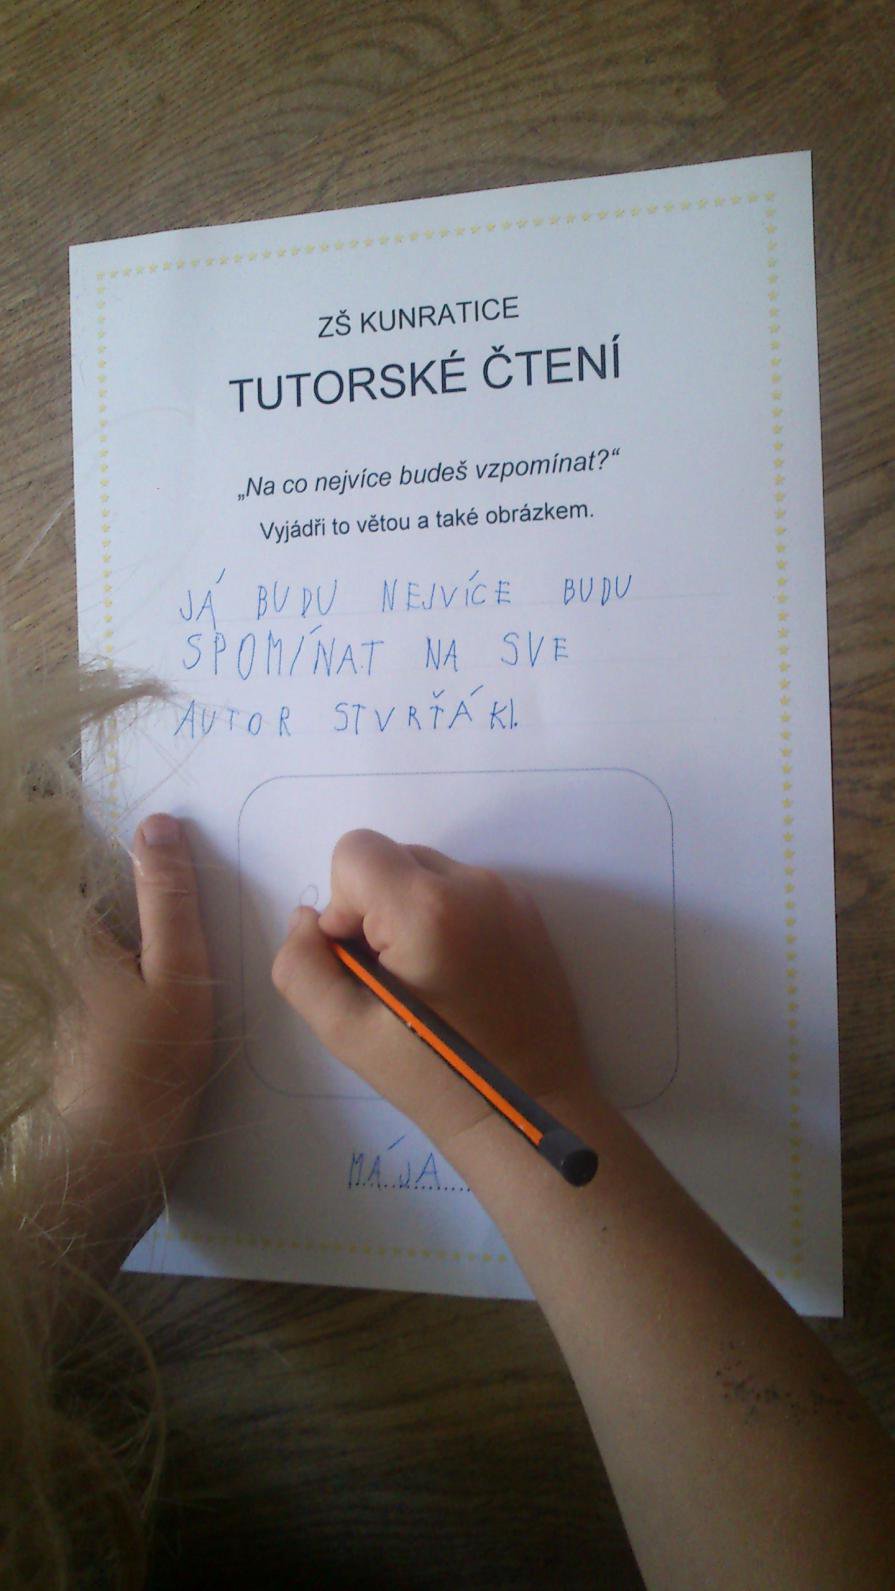 ZŠ KUNRATICE
TUTORSKÉ ČTENÍ
„Na co nejvíce budeš vzpomínat?“
Vyjádři to větou a také obrázkem.
JÁ BUDU NEJVÍCE BUDU
SPOMÍNAT NA SVE
AUTOR STVRŤÁKI.
MÁJA